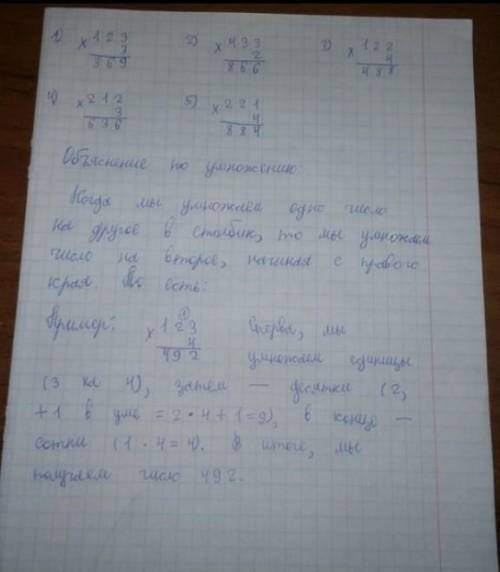 1) 123 2) 433 3) 122
× 3 × 2 × 4
369 866 488
4) ×212 5) ×221
3 4
636 884
Объяснение по умножению:
Когда мы умножаем одно число
на другое в столбик, то мы умножаем
число на второе, начиная с правого
края. То есть:
Пример: ×123 Сперва, мы
4
492 умножаем единицы
(3 на 4), затем — десятки (2,
+1 в уме = 2·4+1=9), в конце —
сотни (1·4=4). В итоге, мы
получаем число 492.